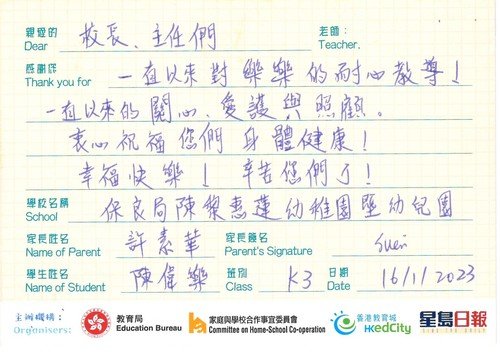 親愛的 校長、主任們 老師：
Dear Teacher,
感謝您
Thank you for 一直以來對樂樂的耐心教導！
一直以來的關心、愛護與照顧。
衷心祝福您們身體健康！
幸福快樂！辛苦您們了！
學校名稱
School 保良局陳黎惠蓮幼稚園暨幼兒園
家長姓名 許素華 家長簽名
Name of Parent Parent's Signature Suen
學生姓名 陳偉樂 班別 K3 日期 16/11/2023
Name of Student Class Date
主辦機構：
Organisers:
教育局
Education Bureau
家庭與學校合作事宜委員會
Committee on Home-School Co-operation
香港教育城
HKedCity
星島日報
SING TAO DAILY